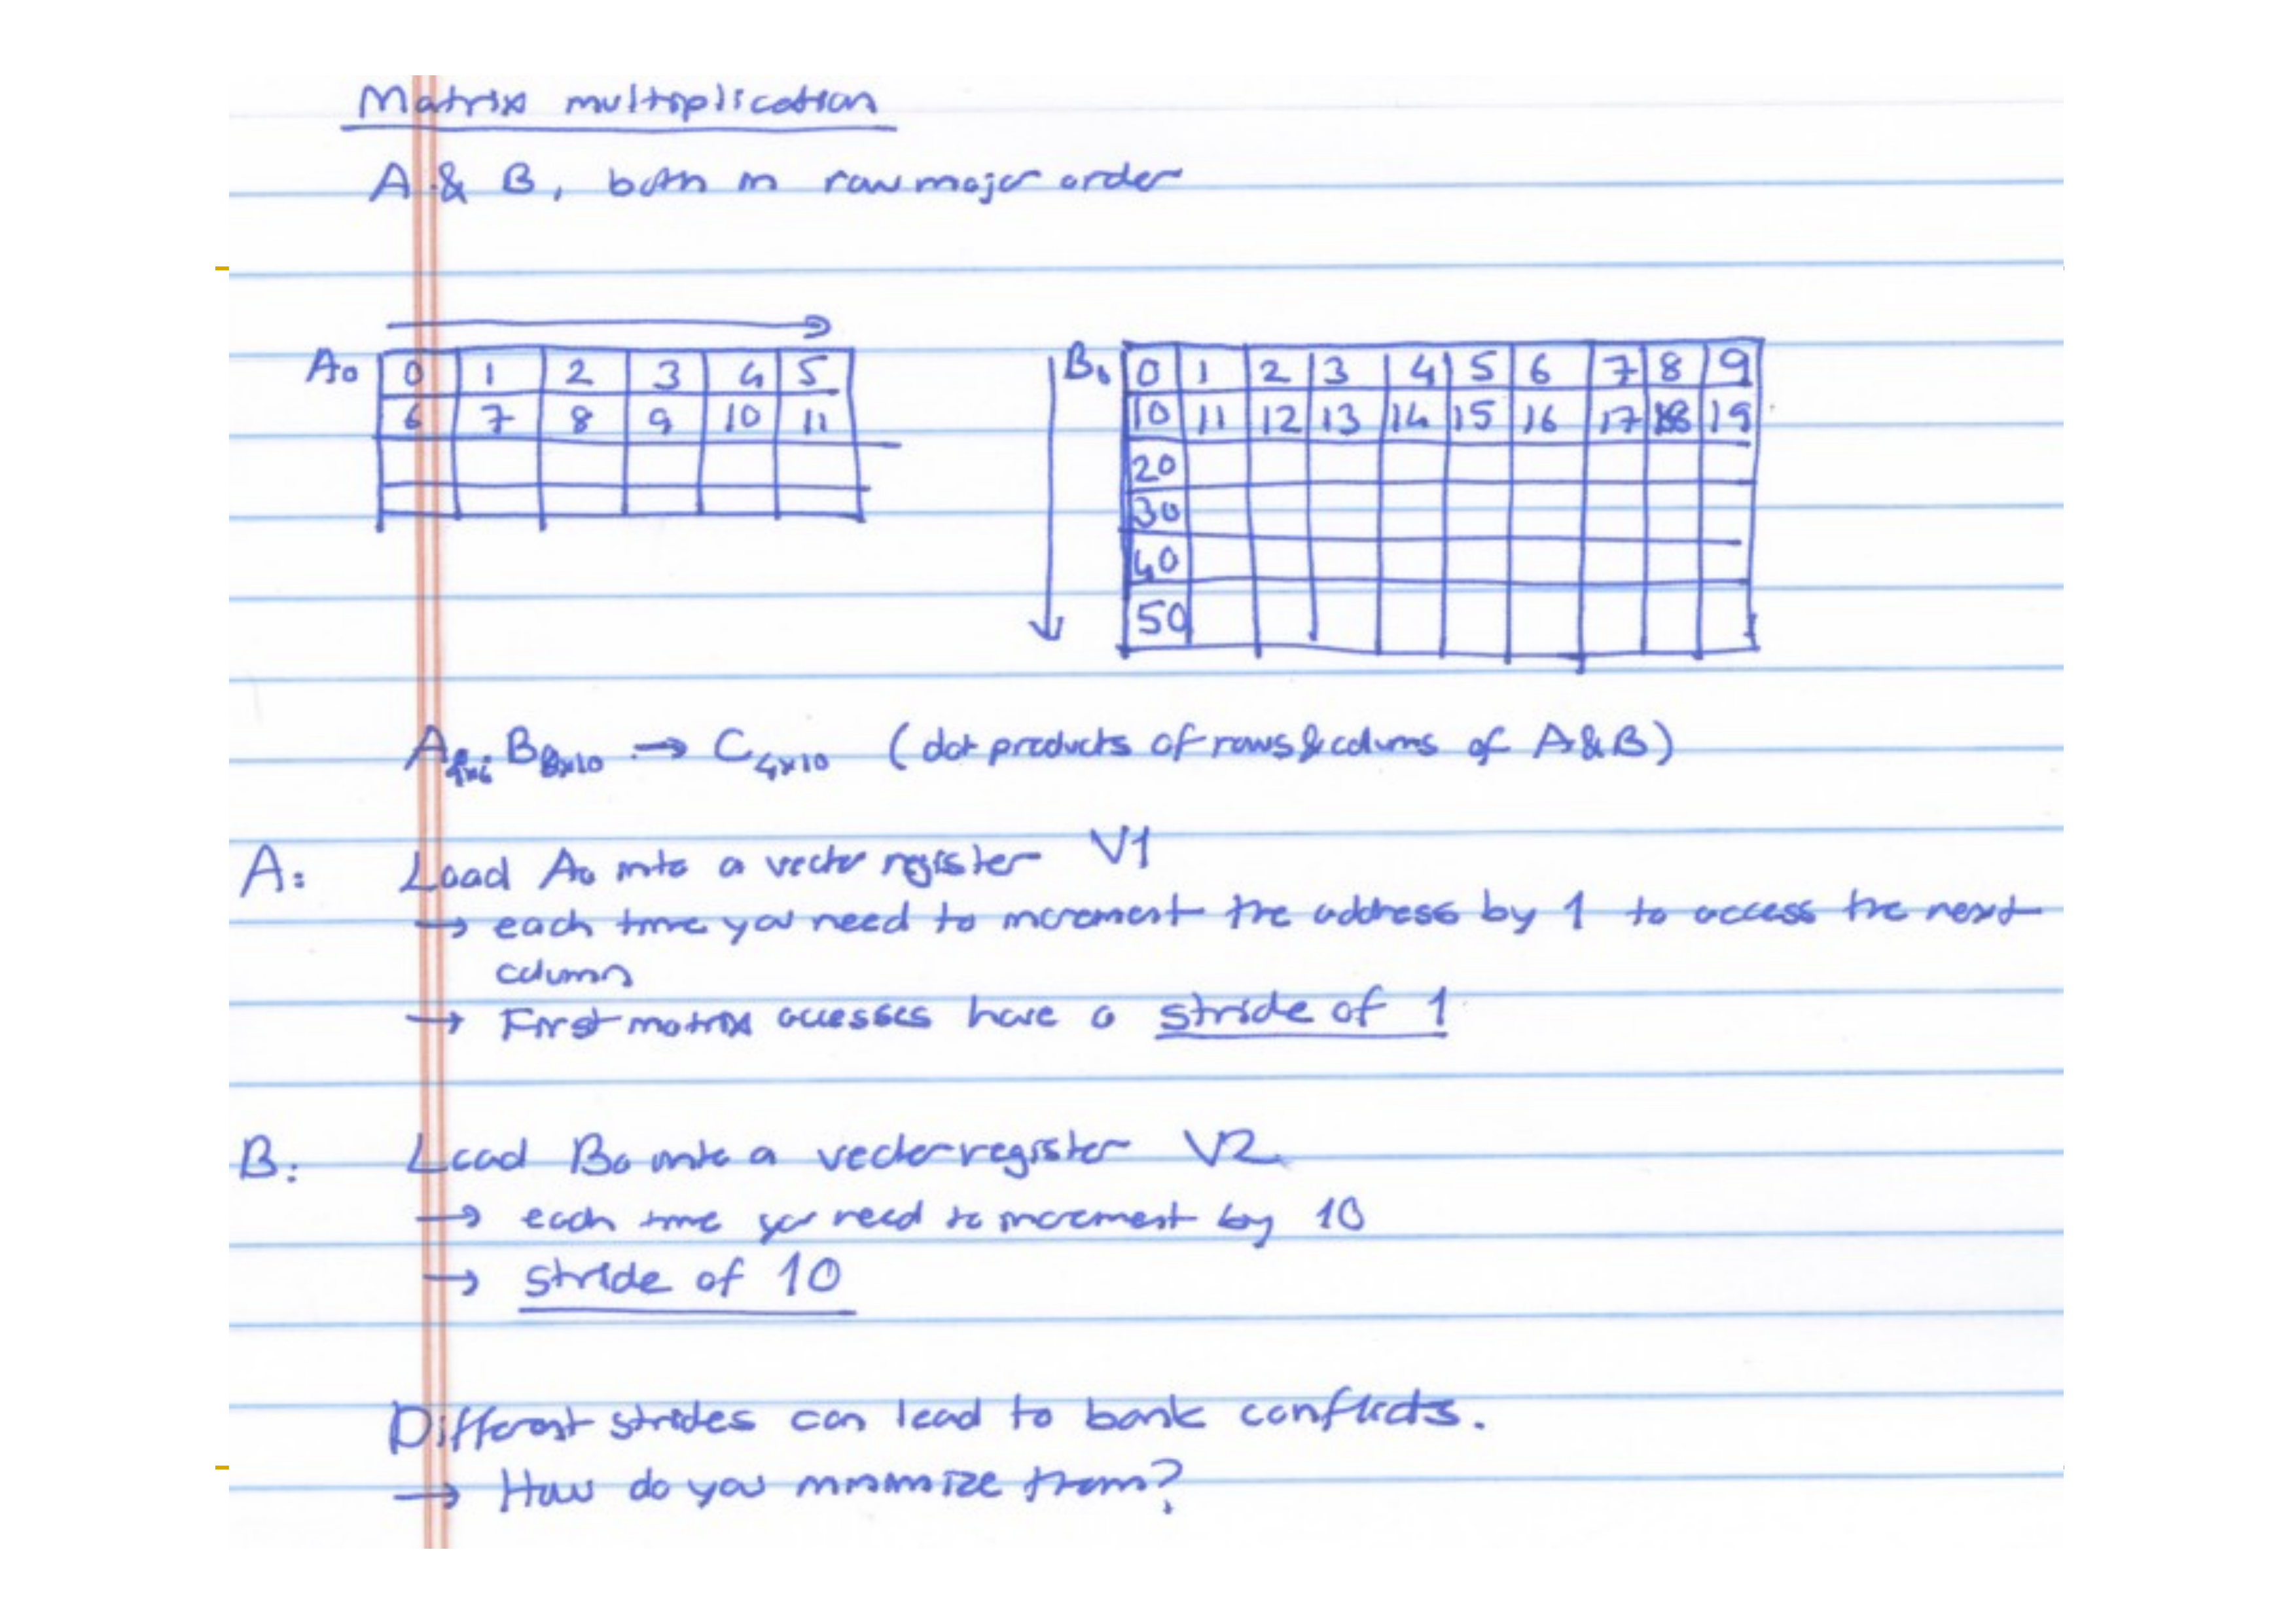 Matrix multiplication
A & B, both in row major order
A0 0 1 2 3 4 5
6 7 8 9 10 11
B0 0 1 2 3 4 5 6 7 8 9
10 11 12 13 14 15 16 17 18 19
20
30
40
50
A4x6 B6x10 → C4x10 (dot products of rows & colums of A & B)
A: Load A0 into a vector register V1
→ each time you need to increment the address by 1 to access the next
column
→ First matrix accesses have a stride of 1
B: Load B0 into a vector register V2
→ each time you need to increment by 10
→ stride of 10
Different strides can lead to bank conflicts.
→ How do you minimize them?